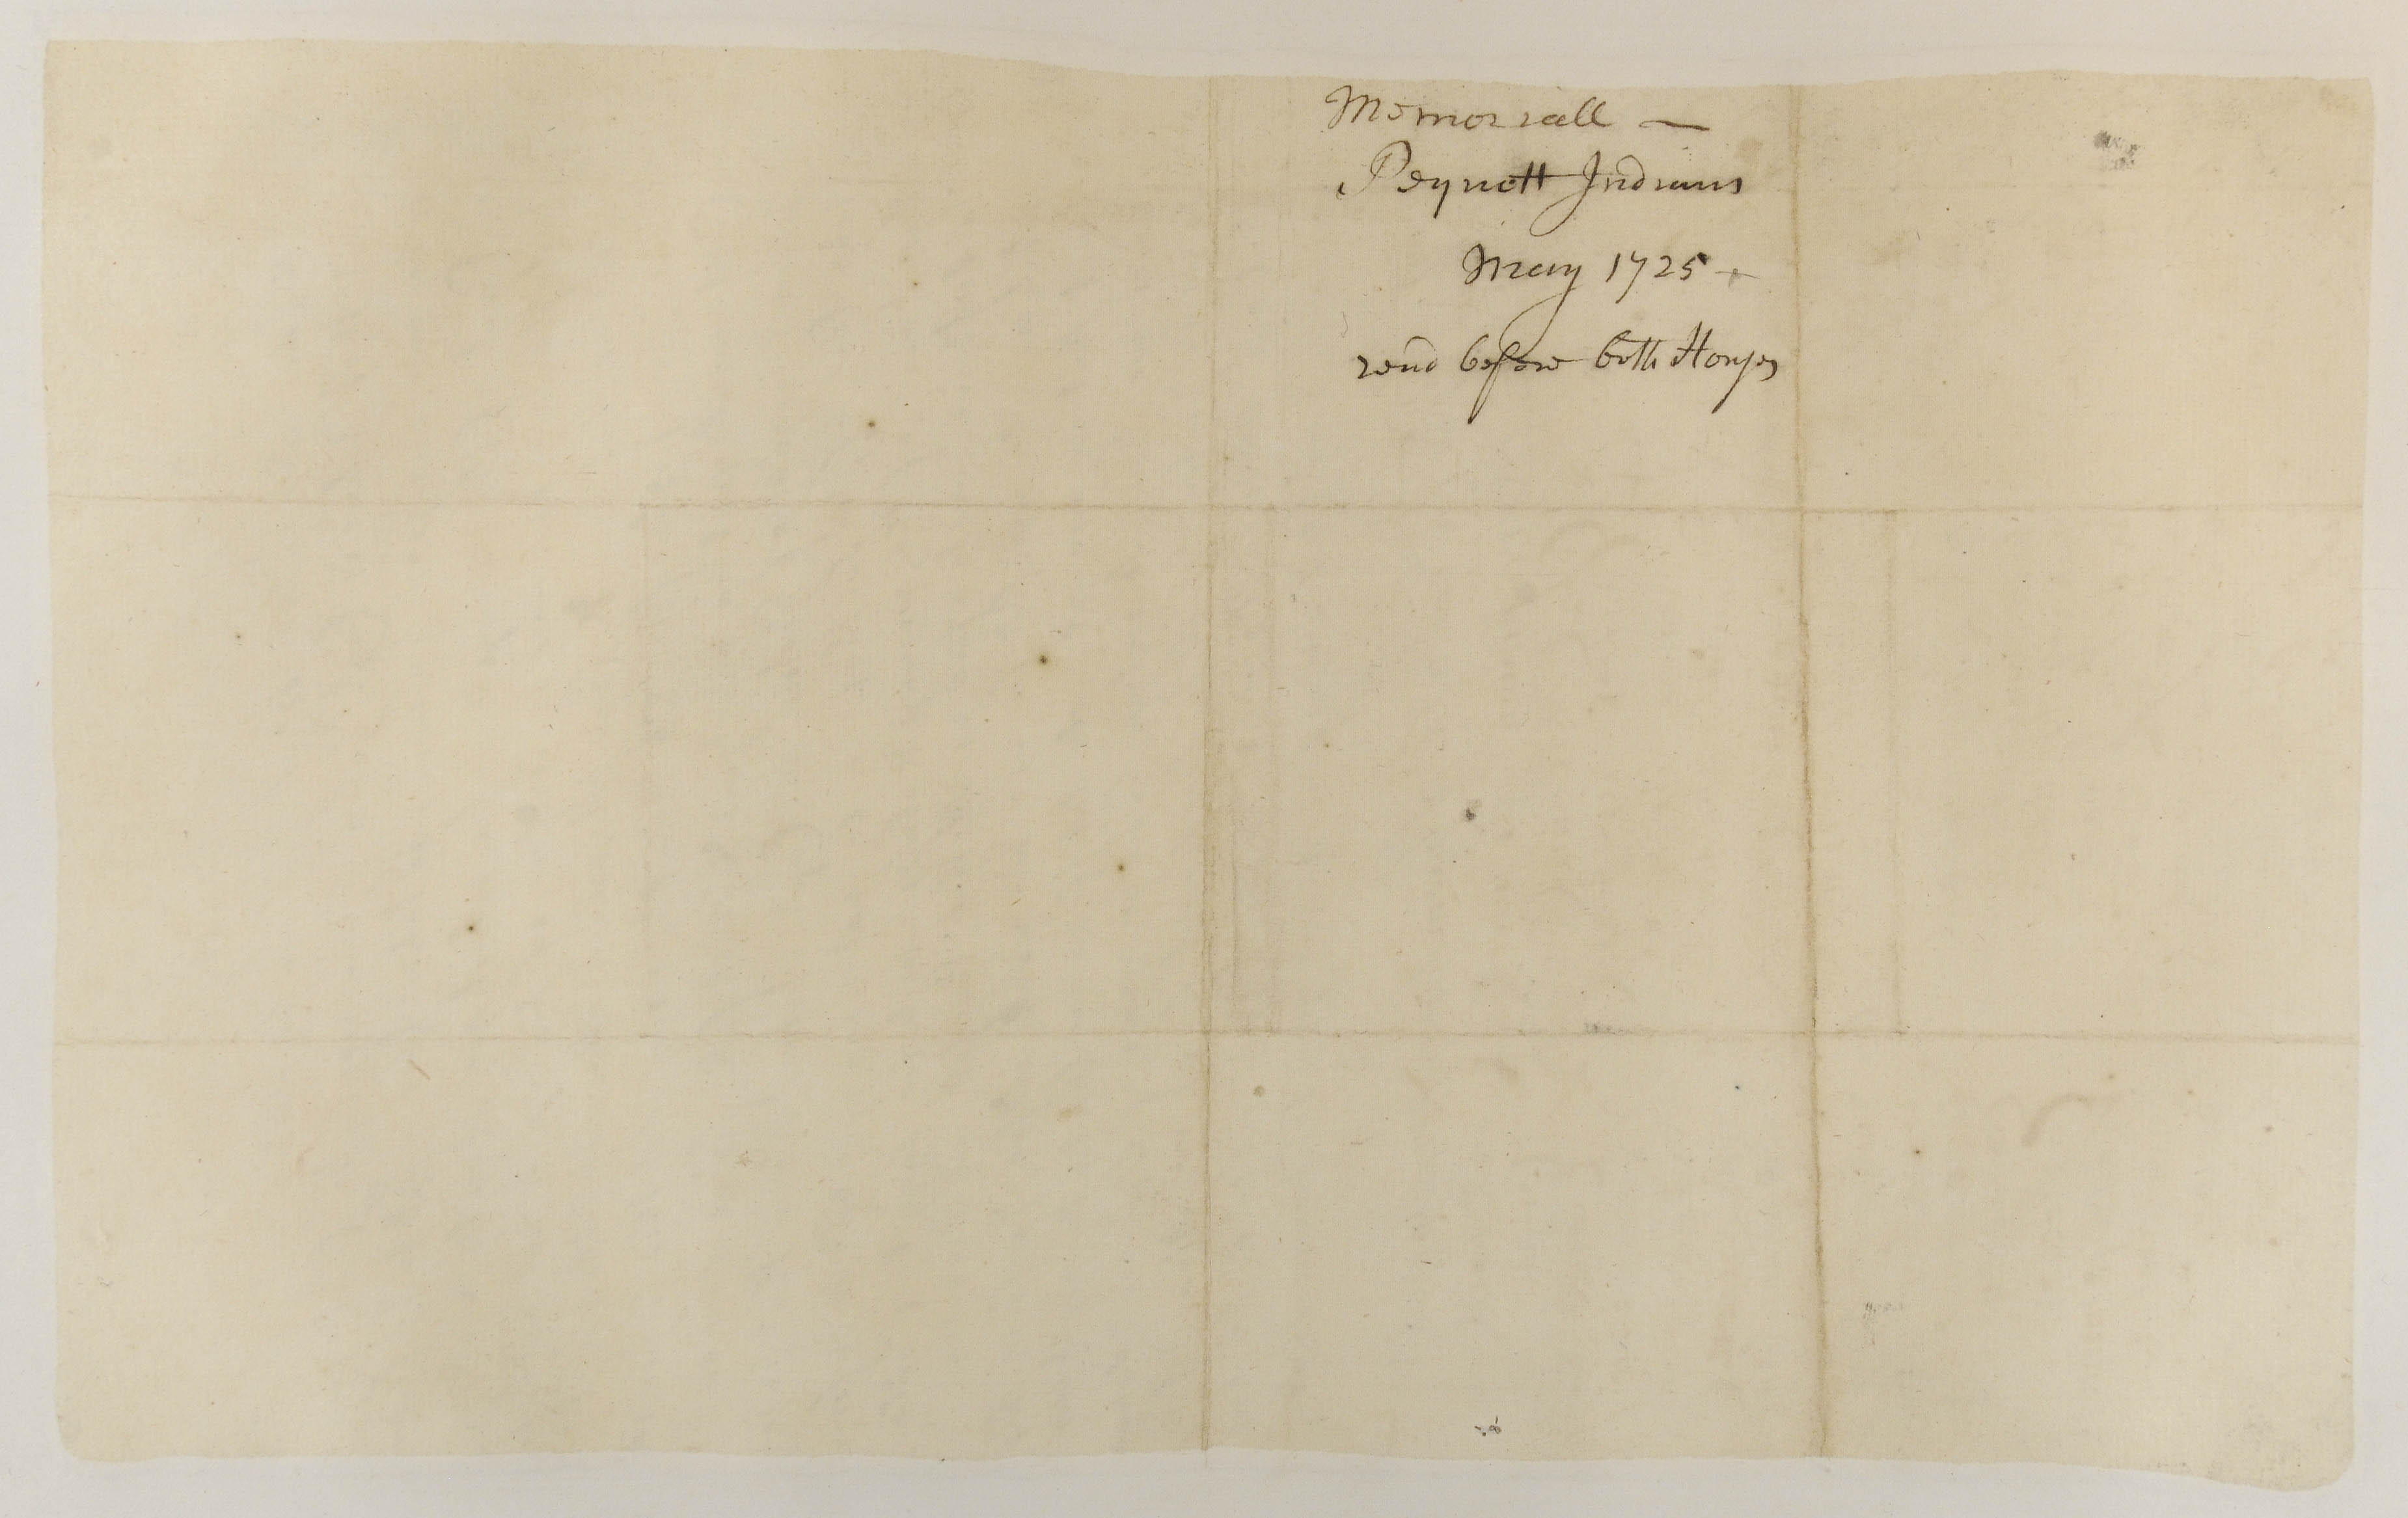 Memoriall —
Pequott Indians
May 1725 —
read before both Houses